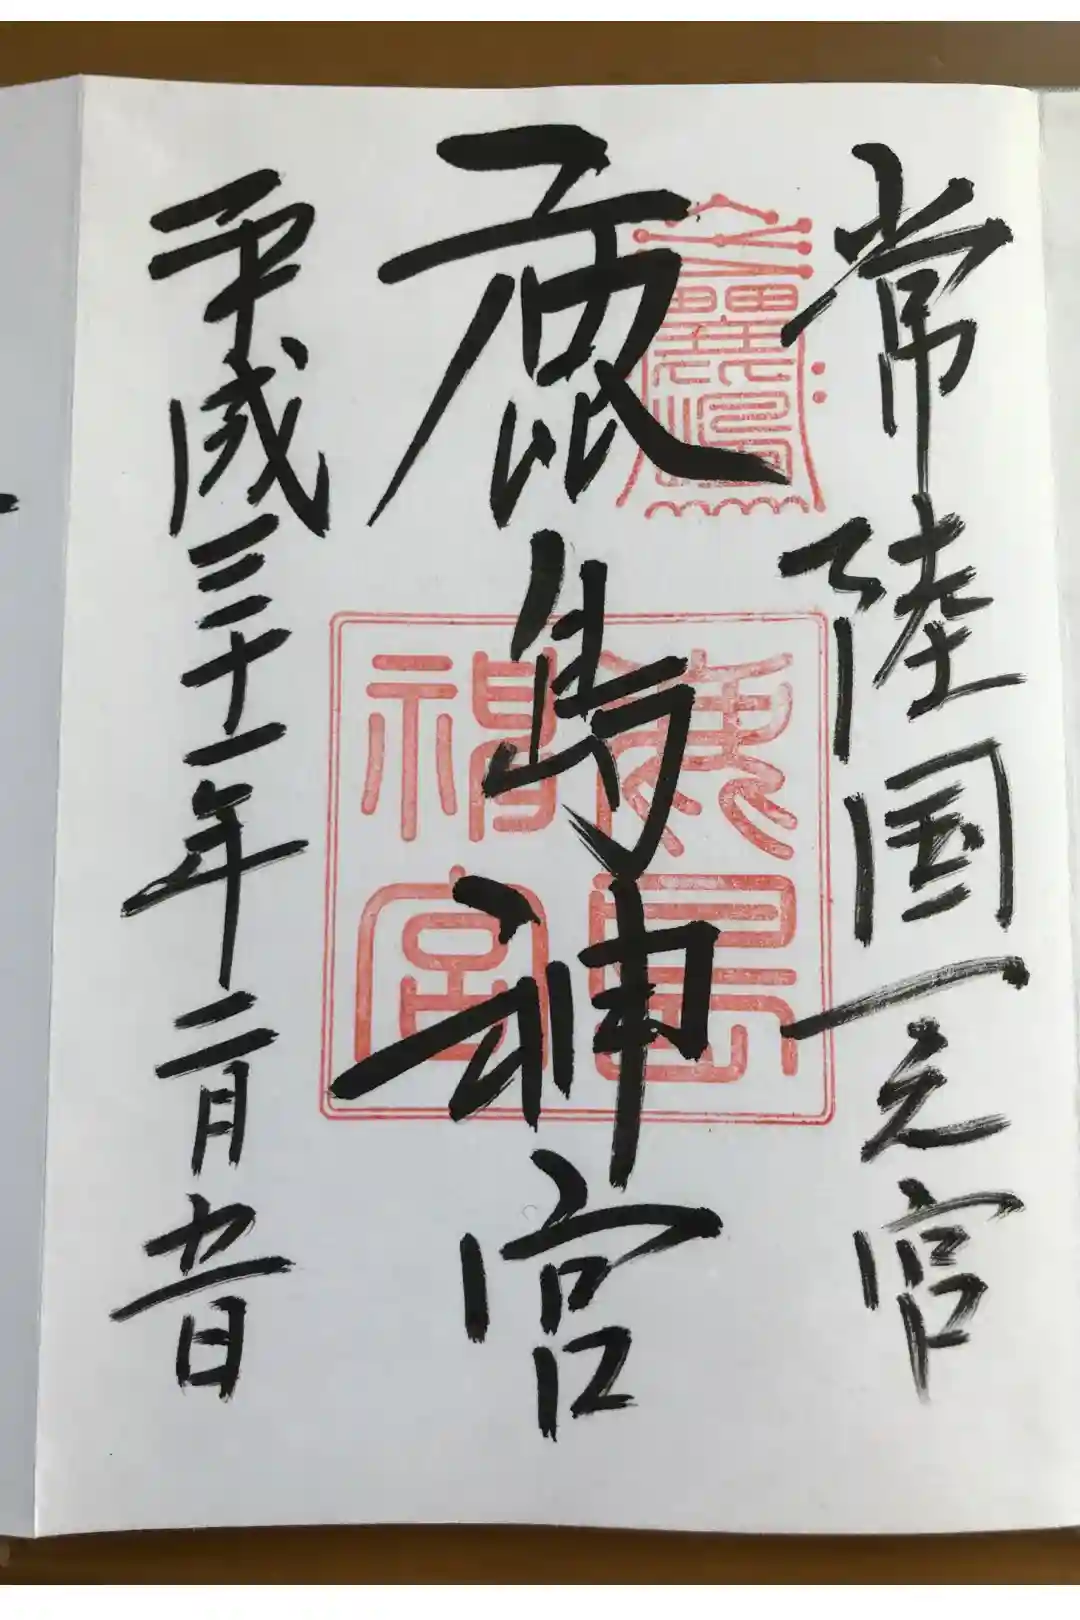 常陸国一之宮
鹿島神宮
鹿島神宮
平成三十一年二月九日